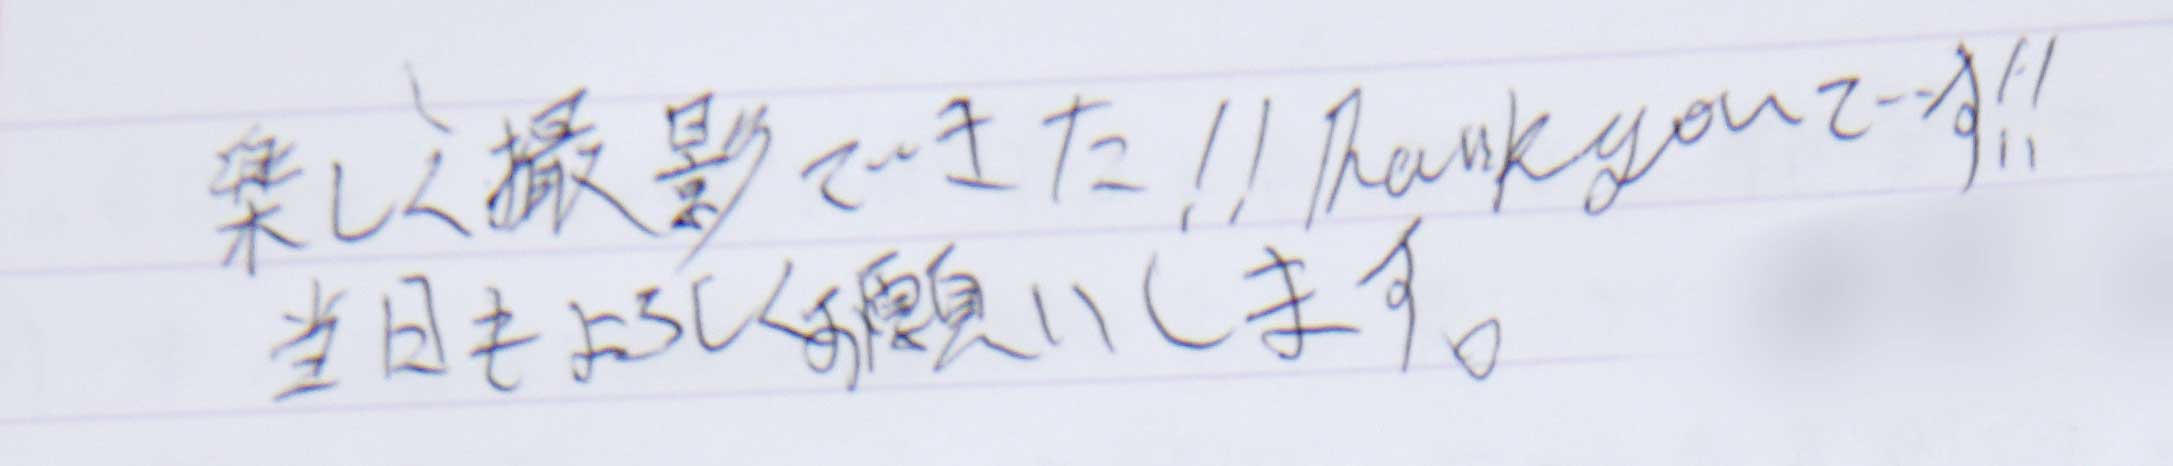 楽しく撮影できた!! Thank youです!!
当日もよろしくお願いします。